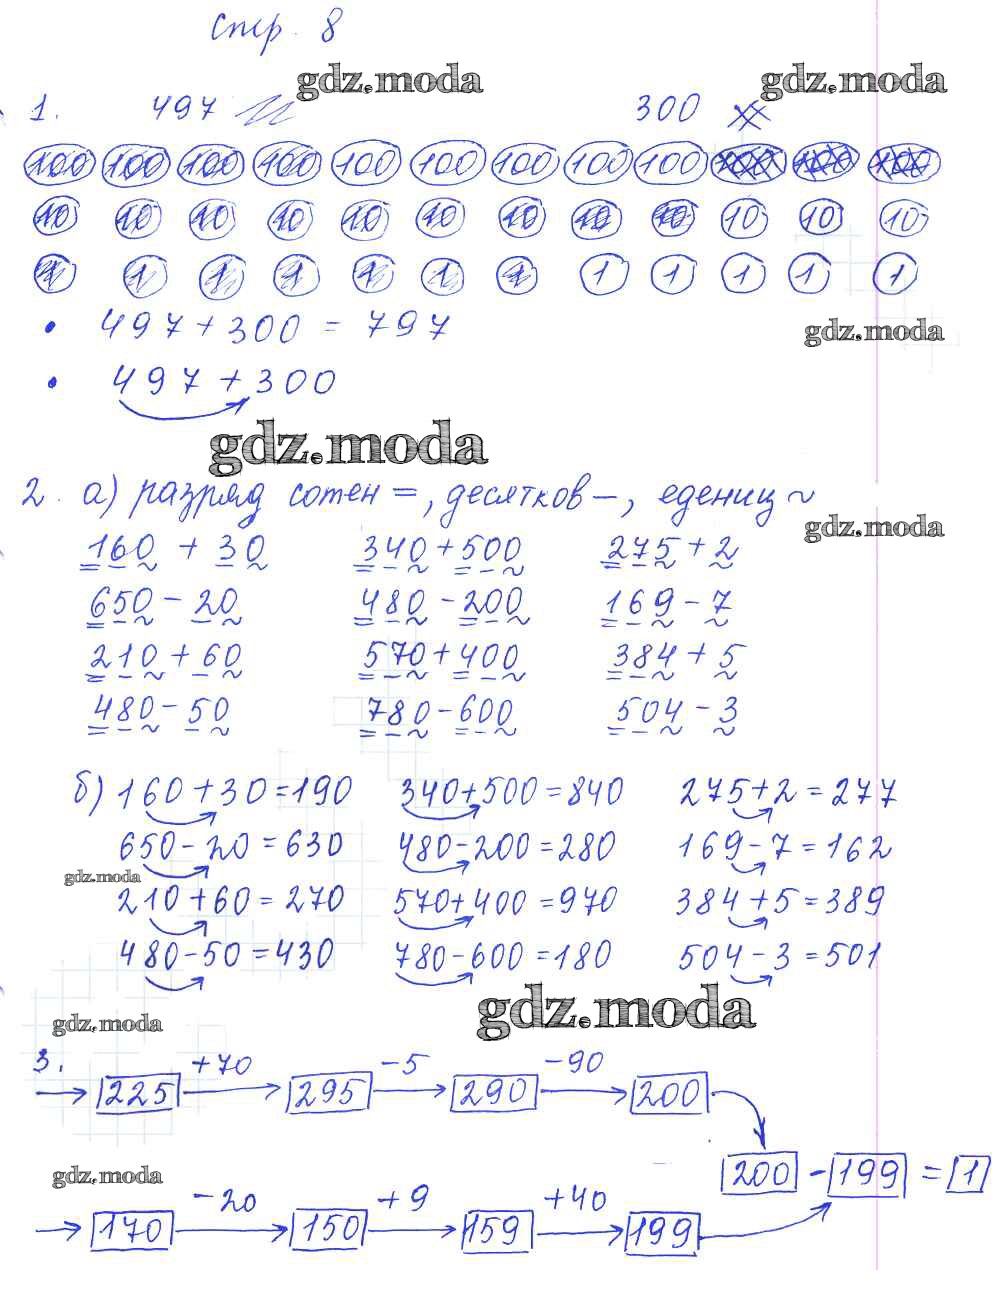 стр. 8
gdz.moda gdz.moda
1. 497 300
100 100 100 100 100 100 100 100 100 100 100 100
10 10 10 10 10 10 10 10 10 10 10 10
1 1 1 1 1 1 1 1 1 1 1 1
• 497 + 300 = 797
gdz.moda
• 497 + 300
gdz.moda
2. а) разряд сотен =, десятков –, едениц ~
gdz.moda
160 + 30 340 + 500 275 + 2
650 - 20 480 - 200 169 - 7
210 + 60 570 + 400 384 + 5
480 - 50 780 - 600 504 - 3
б) 160 + 30 = 190 340 + 500 = 840 275 + 2 = 277
650 - 20 = 630 480 - 200 = 280 169 - 7 = 162
gdz.moda
210 + 60 = 270 570 + 400 = 970 384 + 5 = 389
480 - 50 = 430 780 - 600 = 180 504 - 3 = 501
gdz.moda gdz.moda
3. +70 -5 -90
225 295 290 200
gdz.moda
200 - 199 = 1
-20 +9 +40
170 150 159 199